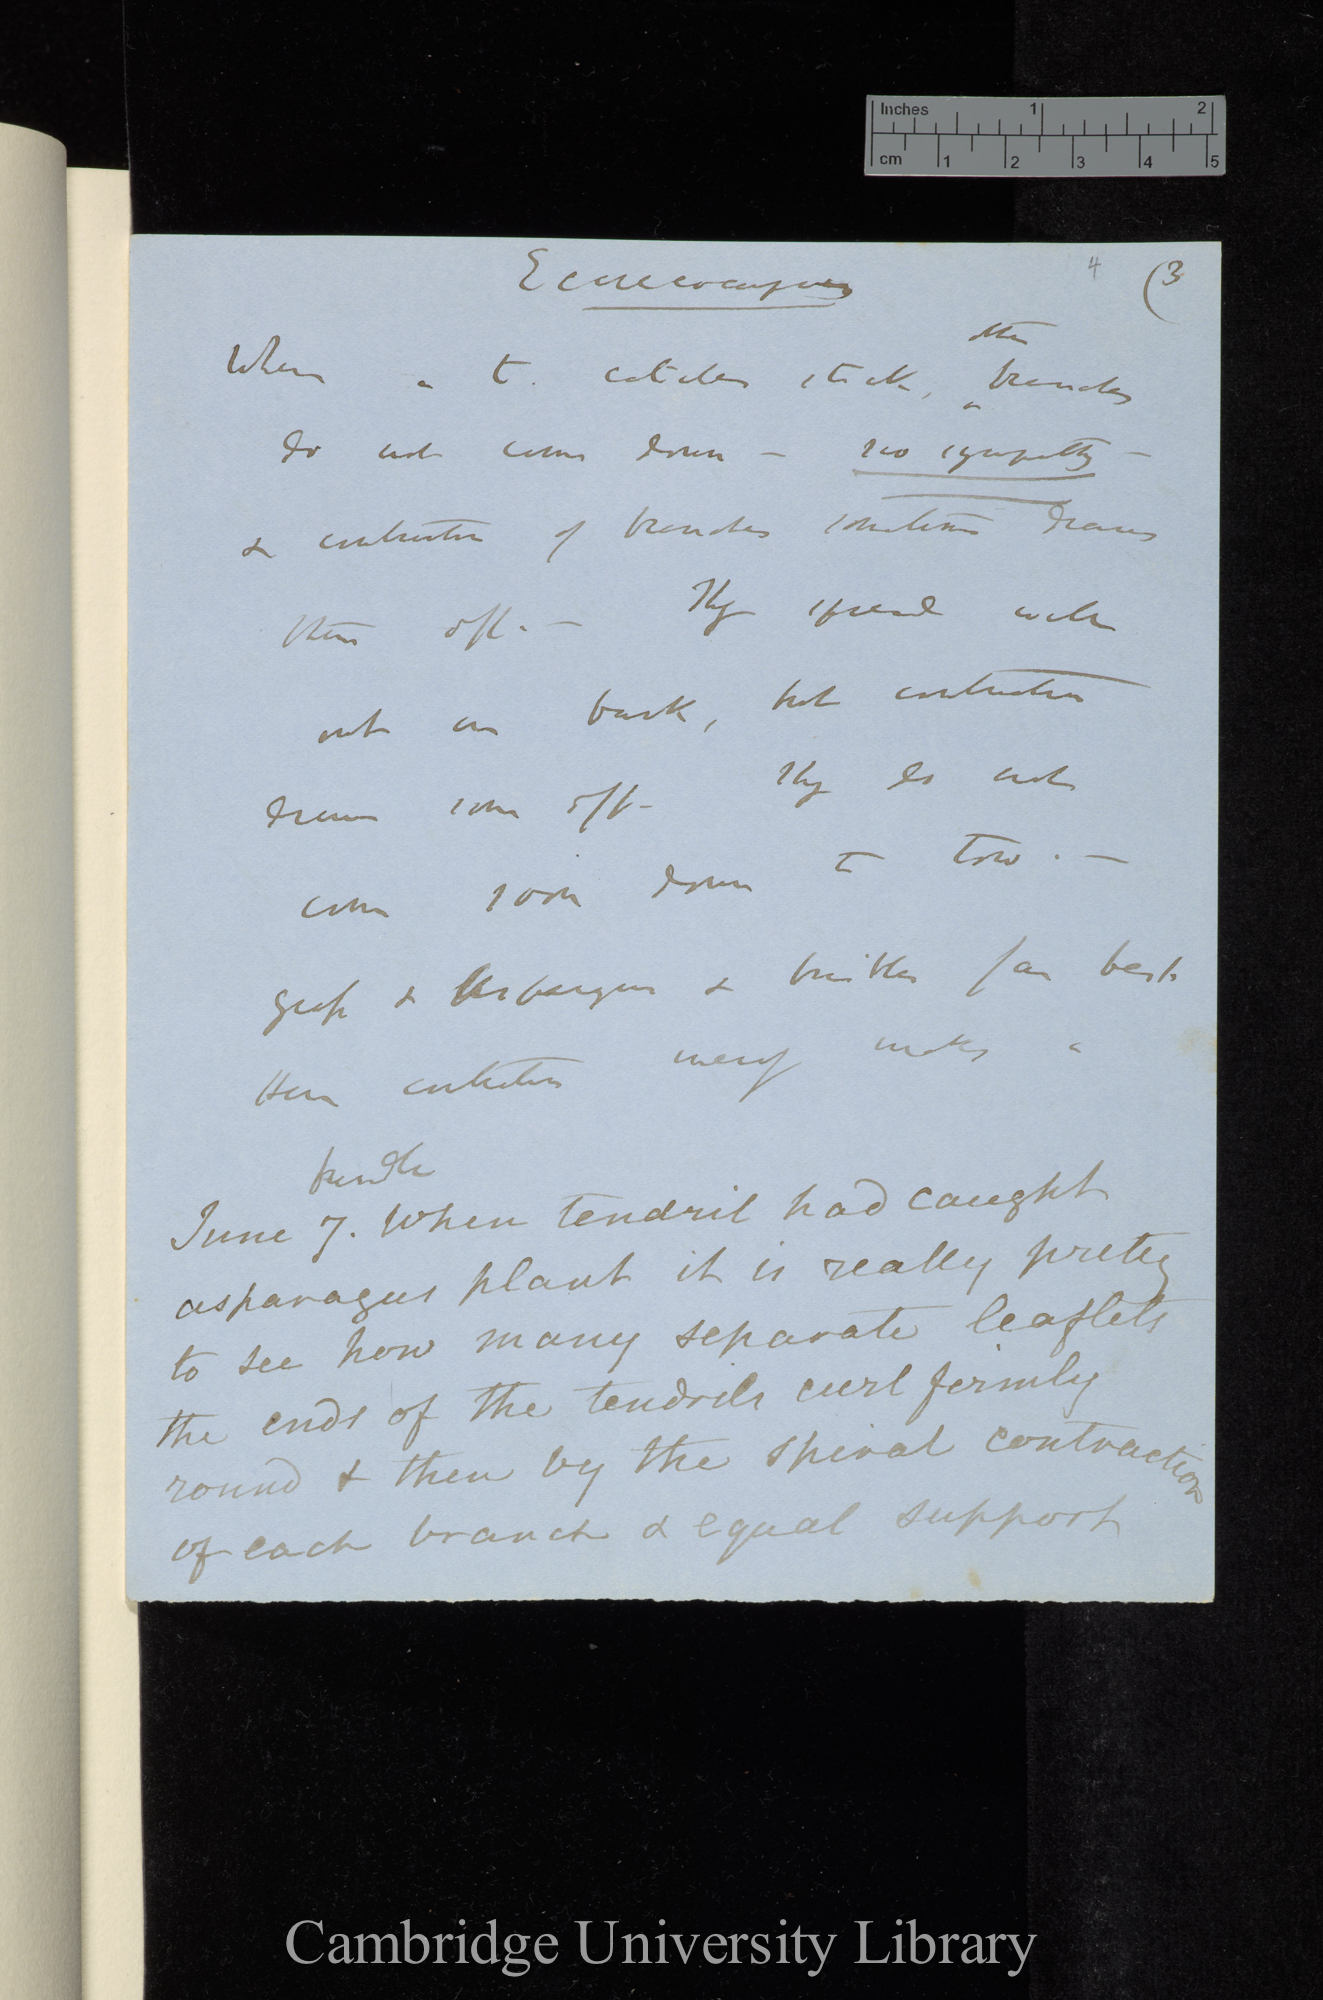 Inches 1 2
cm 1 2 3 4 5
4 (3
Eccremocarpus
other
When a t. catches stick, ^ branches
do not come down — no sympathy —
& contraction of branches sometimes draws
them off. — They spread well
out on bark, but contraction
draws some off — They do not
come soon down to tow. —
grass & Asparagus & bristles far best
Here contraction merely makes a
bundle
June 7. When tendril had caught
asparagus plant it is really pretty
to see how many separate leaflets
the ends of the tendrils curl firmly
round & then by the spiral contraction
of each branch & equal support
Cambridge University Library